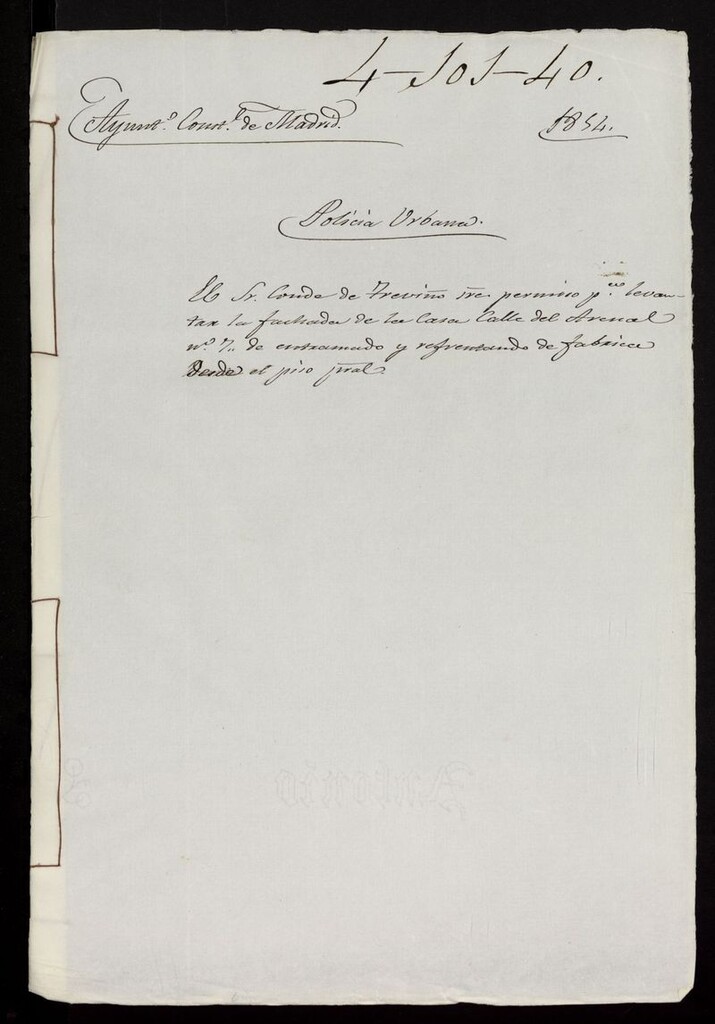 4-101-40.
Ayunt.º Const.l de Madrid.
1854.
Policia Urbana.
El Sr. Conde de Treviño sre. permiso p.a levan-
tar la fachada de la Casa Calle del Arenal
n.º 7. de entramado y refrentando de fabrica
desde el piso pral.
Antonio